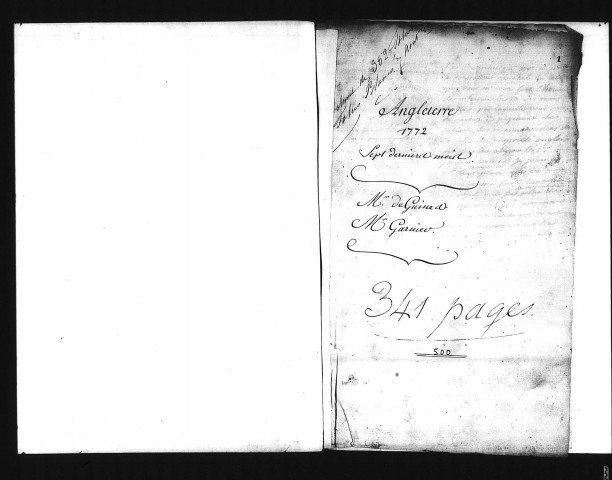 1
Angleterre
1772
Sept derniers mois.
Mr. de Guines
Mr. Garnier.
341 pages.
500